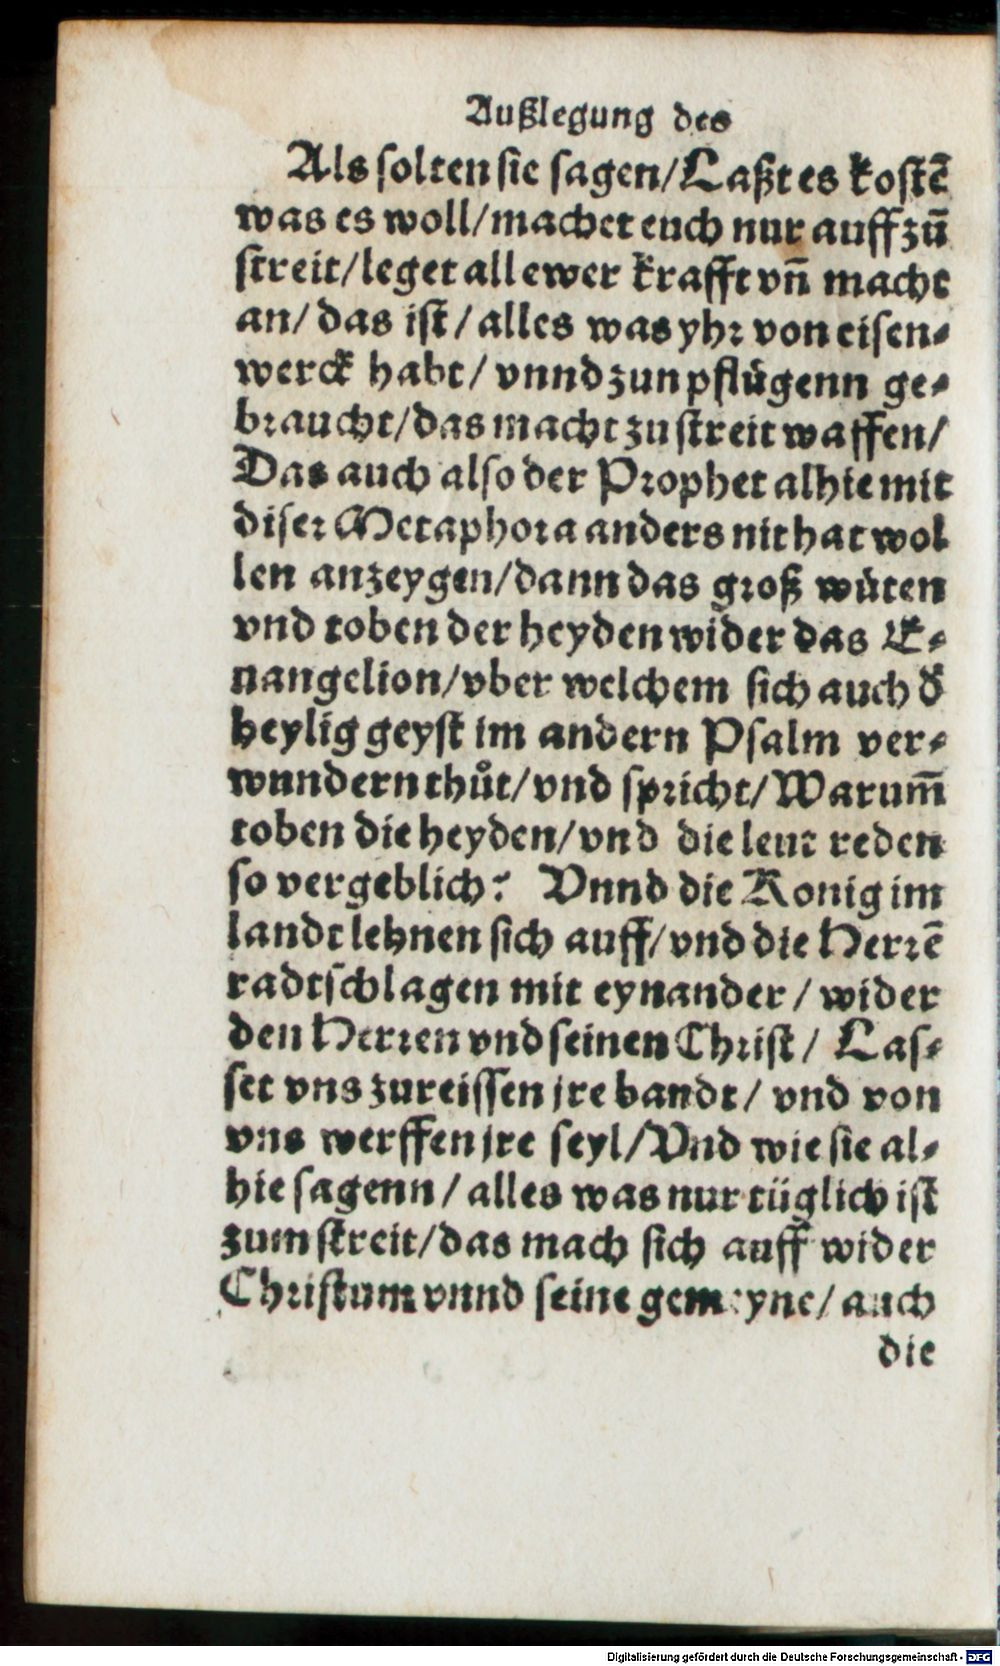 Außlegung des
Als solten sie sagen/Laßt es kostē
was es woll/machet euch nur auff zū
streit/leget all ewer krafft vn̄ macht
an/das ist/alles was yhr von eisen-
werck habt/vnnd zun pflügenn ge-
braucht/das macht zu streit waffen/
Das auch also der Prophet alhie mit
diser Metaphora anders nit hat wol
len anzeygen/dann das groß wüten
vnd toben der heyden wider das E-
uangelion/vber welchem sich auch d̄
heylig geyst im andern Psalm ver-
wundern thůt/vnd spricht/Warum̄
toben die heyden/vnd die leut reden
so vergeblich? Vnnd die Konig im
landt lehnen sich auff/vnd die Herrē
radtschlagen mit eynander/wider
den Herren vnd seinen Christ/ Las-
set vns zureissen jre bandt/vnd von
vns werffen jre seyl/Vnd wie sie al-
hie sagenn/alles was nur tüglich ist
zum streit/das mach sich auff wider
Christum vnnd seine gemeyne/auch
die
Digitalisierung gefördert durch die Deutsche Forschungsgemeinschaft - DFG